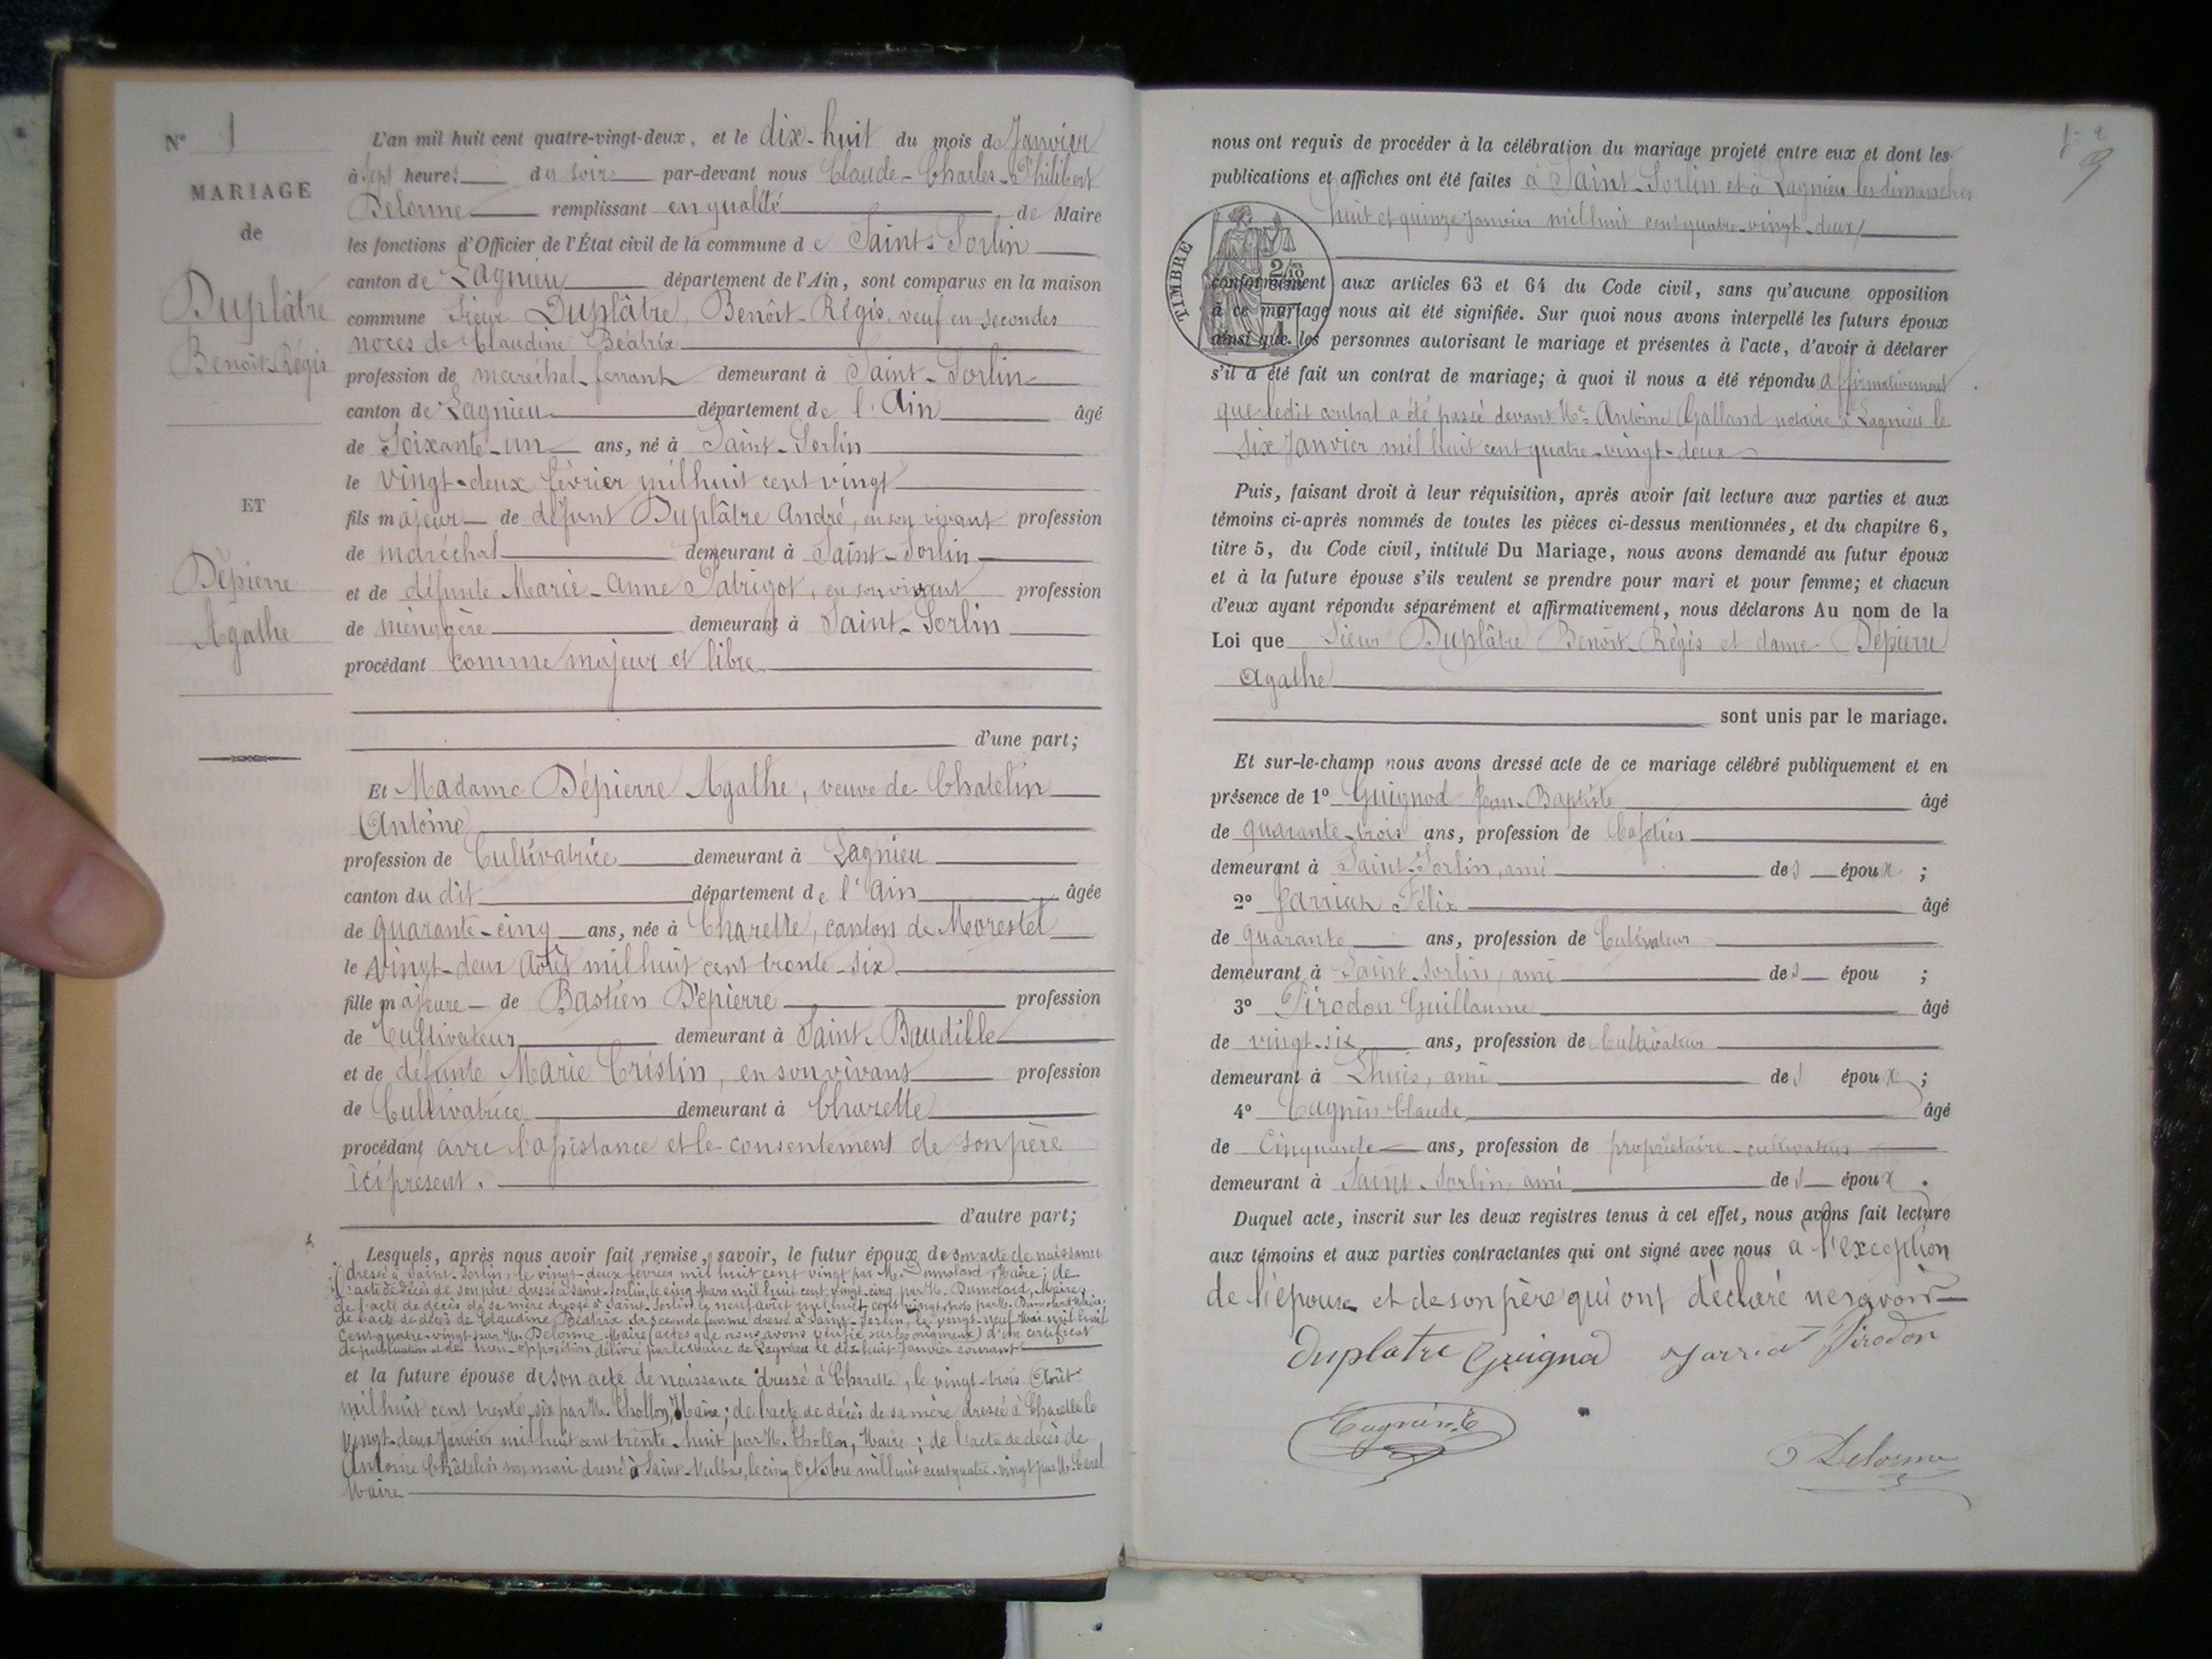 N° 1
MARIAGE
de
Duplâtre
Benoît-Régis
ET
Dépierre
Agathe
L'an mil huit cent quatre-vingt-deux, et le dix-huit du mois de Janvier
à sept heures du soir par-devant nous Claude-Charles-Philibert
Delorme remplissant en qualité de Maire
les fonctions d'Officier de l'État civil de la commune de Saint-Sorlin
canton de Lagnieu département de l'Ain, sont comparus en la maison
commune Sieur Duplâtre, Benoît-Régis, veuf en secondes
noces de Claudine Béatrix
profession de maréchal-ferrant demeurant à Saint-Sorlin
canton de Lagnieu département de l'Ain âgé
de Soixante-un ans, né à Saint-Sorlin
le vingt-deux février mil huit cent vingt
fils majeur de défunt Duplâtre André, en son vivant profession
de maréchal demeurant à Saint-Sorlin
et de défunte Marie-Anne Patrigot, en son vivant profession
de ménagère demeurant à Saint-Sorlin
procédant comme majeur et libre
d'une part;
Et Madame Dépierre Agathe, veuve de Chatelin
Antoine
profession de Cultivatrice demeurant à Lagnieu
canton du dit département de l'Ain âgée
de quarante-cinq ans, née à Charette, canton de Morestel
le vingt-deux Août mil huit cent trente-six
fille majeure de Bastien Dépierre profession
de Cultivateur demeurant à Saint-Baudille
et de défunte Marie Cristin, en son vivant profession
de Cultivatrice demeurant à Charette
procédant avec l'assistance et le consentement de son père
ici présent.
d'autre part;
Lesquels, après nous avoir fait remise, savoir, le futur époux de son acte de naissance
dressé à Saint-Sorlin, le vingt-deux février mil huit cent vingt par M. Dumolard Maire; de
l'acte de décès de son père dressé à Saint-Sorlin, le cinq Mars mil huit cent vingt-cinq par M. Dumolard, Maire;
de l'acte de décès de sa mère dressé à Saint-Sorlin, le neuf août mil huit cent vingt-trois par M. Dumolard Maire;
de l'acte de décès de Claudine Béatrix sa seconde femme dressé à Saint-Sorlin, le vingt-neuf Mai mil huit
cent quatre-vingt par M. Delorme Maire (actes que nous avons vérifié sur les originaux) d'un certificat
de publication et de non-opposition délivré par le Maire de Lagnieu le dix-huit Janvier courant
et la future épouse de son acte de naissance dressé à Charette, le vingt-trois Août
mil huit cent trente-six par M. Chollon, Maire; de l'acte de décès de sa mère dressé à Charette le
vingt-deux Janvier mil huit cent trente-huit par M. Chollon, Maire; de l'acte de décès de
Antoine Châtelin son mari dressé à Saint-Vulbas, le cinq Octobre mil huit cent quatre-vingt par M.
Maire
9
nous ont requis de procéder à la célébration du mariage projeté entre eux et dont les
publications et affiches ont été faites à Saint-Sorlin et à Lagnieu les dimanches
huit et quinze Janvier mil huit cent quatre-vingt-deux
TIMBRE
conformément aux articles 63 et 64 du Code civil, sans qu'aucune opposition
à ce mariage nous ait été signifiée. Sur quoi nous avons interpellé les futurs époux
ainsi que les personnes autorisant le mariage et présentes à l'acte, d'avoir à déclarer
s'il a été fait un contrat de mariage; à quoi il nous a été répondu affirmativement
que ledit contrat a été passé devant Me Antoine Galland notaire à Lagnieu le
six Janvier mil huit cent quatre-vingt-deux
Puis, faisant droit à leur réquisition, après avoir fait lecture aux parties et aux
témoins ci-après nommés de toutes les pièces ci-dessus mentionnées, et du chapitre 6,
titre 5, du Code civil, intitulé Du Mariage, nous avons demandé au futur époux
et à la future épouse s'ils veulent se prendre pour mari et pour femme; et chacun
d'eux ayant répondu séparément et affirmativement, nous déclarons Au nom de la
Loi que Sieur Duplâtre Benoît-Régis et dame Dépierre
Agathe
sont unis par le mariage.
Et sur-le-champ nous avons dressé acte de ce mariage célébré publiquement et en
présence de 1° Guignod Jean-Baptiste âgé
de quarante-trois ans, profession de Cafetier
demeurant à Saint-Sorlin, ami des époux ;
2° Jarriat Félix âgé
de quarante ans, profession de Cultivateur
demeurant à Saint-Sorlin, ami des épou ;
3° Pirodon Guillaume âgé
de vingt-six ans, profession de Cultivateur
demeurant à Lhuis, ami des époux ;
4° Cagnin Claude âgé
de Cinquante ans, profession de propriétaire-cultivateur
demeurant à Saint-Sorlin, ami des époux .
Duquel acte, inscrit sur les deux registres tenus à cet effet, nous avons fait lecture
aux témoins et aux parties contractantes qui ont signé avec nous à l'exception
de l'épouse et de son père qui ont déclaré ne savoir
Duplatre Guignod Jarriat Pirodon
Cagnin C
Delorme